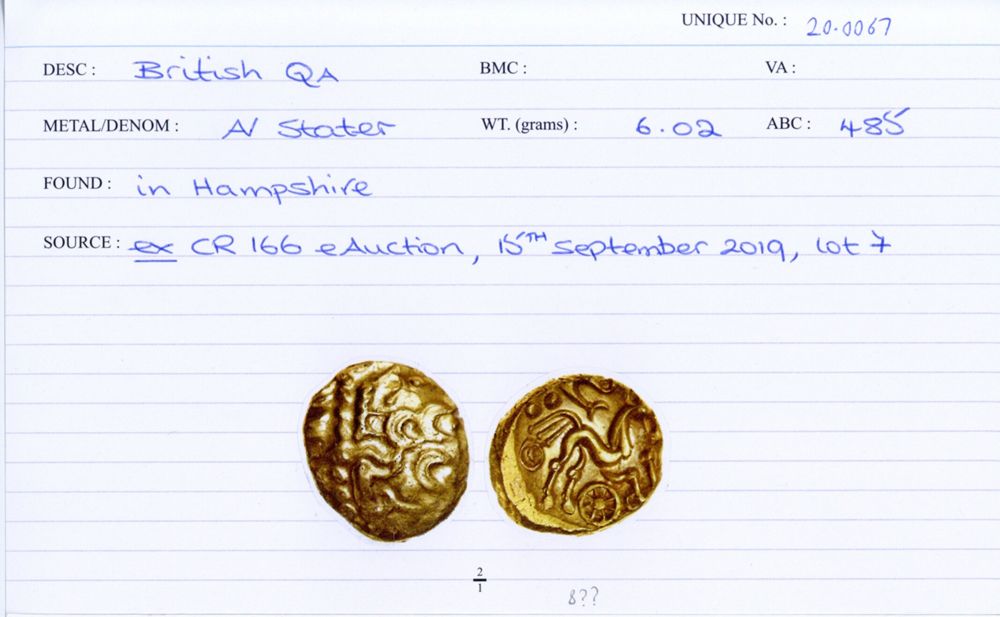 UNIQUE No. : 20.0067
DESC : British QA BMC : VA :
METAL/DENOM : AV Stater WT. (grams) : 6.02 ABC : 485
FOUND : in Hampshire
SOURCE : ex CR 166 eAuction, 15TH September 2019, lot 7
2
1
8??